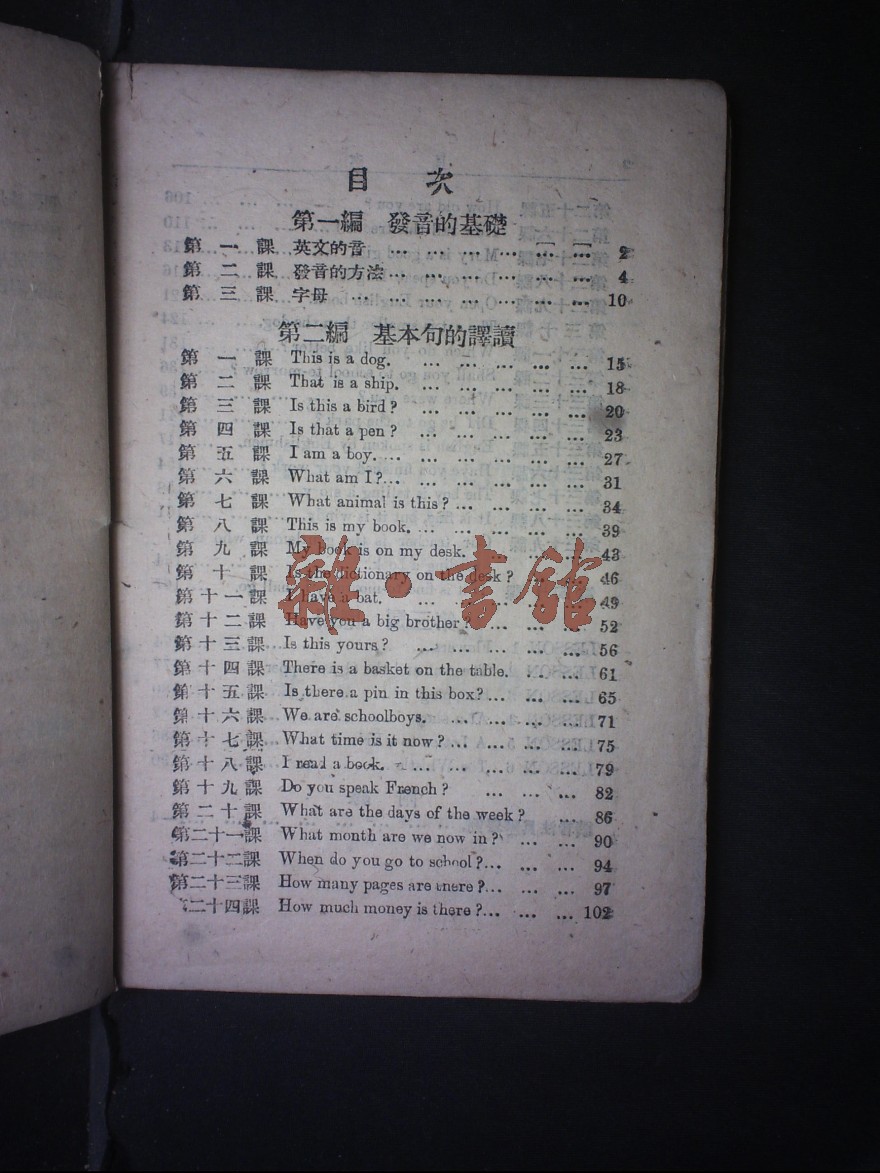 目 次
第一編 發音的基礎
第 一 課 英文的音 ... ... ... ... ... 2
第 二 課 發音的方法 ... ... ... ... ... 4
第 三 課 字母 ... ... ... ... ... ... ... 10
第二編 基本句的譯讀
第 一 課 This is a dog. ... ... ... ... ... 15
第 二 課 That is a ship. ... ... ... ... ... 18
第 三 課 Is this a bird? ... ... ... ... ... 20
第 四 課 Is that a pen? ... ... ... ... ... 23
第 五 課 I am a boy. ... ... ... ... ... ... 27
第 六 課 What am I? ... ... ... ... ... ... 31
第 七 課 What animal is this? ... ... ... ... 34
第 八 課 This is my book. ... ... ... ... ... 39
第 九 課 My book is on my desk. ... ... ... 43
第 十 課 Is the dictionary on the desk? ... ... 46
第十一課 I have a bat. ... ... ... ... ... 49
第十二課 Have you a big brother? ... ... ... 52
第十三課 Is this yours? ... ... ... ... ... 56
第十四課 There is a basket on the table. ... ... 61
第十五課 Is there a pin in this box? ... ... ... 65
第十六課 We are schoolboys. ... ... ... ... 71
第十七課 What time is it now? ... ... ... ... 75
第十八課 I read a book. ... ... ... ... ... 79
第十九課 Do you speak French? ... ... ... 82
第二十課 What are the days of the week? ... ... 86
第二十一課 What month are we now in? ... ... 90
第二十二課 When do you go to school? ... ... ... 94
第二十三課 How many pages are there? ... ... ... 97
第二十四課 How much money is there? ... ... ... 102
雜·書館